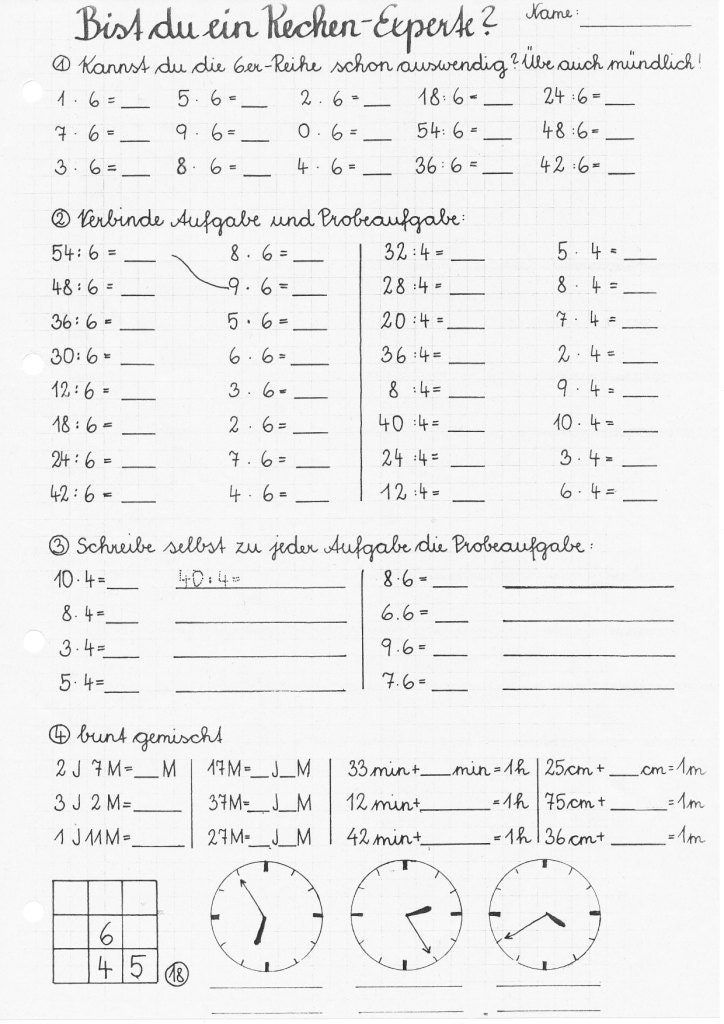 Bist du ein Rechen-Experte? Name: ______
① Kannst du die 6er-Reihe schon auswendig? Übe auch mündlich!
1 · 6 = ___ 5 · 6 = ___ 2 · 6 = ___ 18 : 6 = ___ 24 : 6 = ___
7 · 6 = ___ 9 · 6 = ___ 0 · 6 = ___ 54 : 6 = ___ 48 : 6 = ___
3 · 6 = ___ 8 · 6 = ___ 4 · 6 = ___ 36 : 6 = ___ 42 : 6 = ___
② Verbinde Aufgabe und Probeaufgabe:
54 : 6 = ___ 8 · 6 = ___ 32 : 4 = ___ 5 · 4 = ___
48 : 6 = ___ 9 · 6 = ___ 28 : 4 = ___ 8 · 4 = ___
36 : 6 = ___ 5 · 6 = ___ 20 : 4 = ___ 7 · 4 = ___
30 : 6 = ___ 6 · 6 = ___ 36 : 4 = ___ 2 · 4 = ___
12 : 6 = ___ 3 · 6 = ___ 8 : 4 = ___ 9 · 4 = ___
18 : 6 = ___ 2 · 6 = ___ 40 : 4 = ___ 10 · 4 = ___
24 : 6 = ___ 7 · 6 = ___ 24 : 4 = ___ 3 · 4 = ___
42 : 6 = ___ 4 · 6 = ___ 12 : 4 = ___ 6 · 4 = ___
③ Schreibe selbst zu jeder Aufgabe die Probeaufgabe:
10 · 4 = ___ 40 : 4 = ___ 8 · 6 = ___ ______
8 · 4 = ___ ______ 6 . 6 = ___ ______
3 · 4 = ___ ______ 9 . 6 = ___ ______
5 · 4 = ___ ______ 7 . 6 = ___ ______
④ bunt gemischt
2 J 7 M = ___ M 17 M = __ J __ M 33 min + ___ min = 1 h 25 cm + ___ cm = 1 m
3 J 2 M = ______ 37 M = __ J __ M 12 min + ______ = 1 h 75 cm + ______ = 1 m
1 J 11 M = ______ 27 M = __ J __ M 42 min + ______ = 1 h 36 cm + ______ = 1 m
6
4 5 18